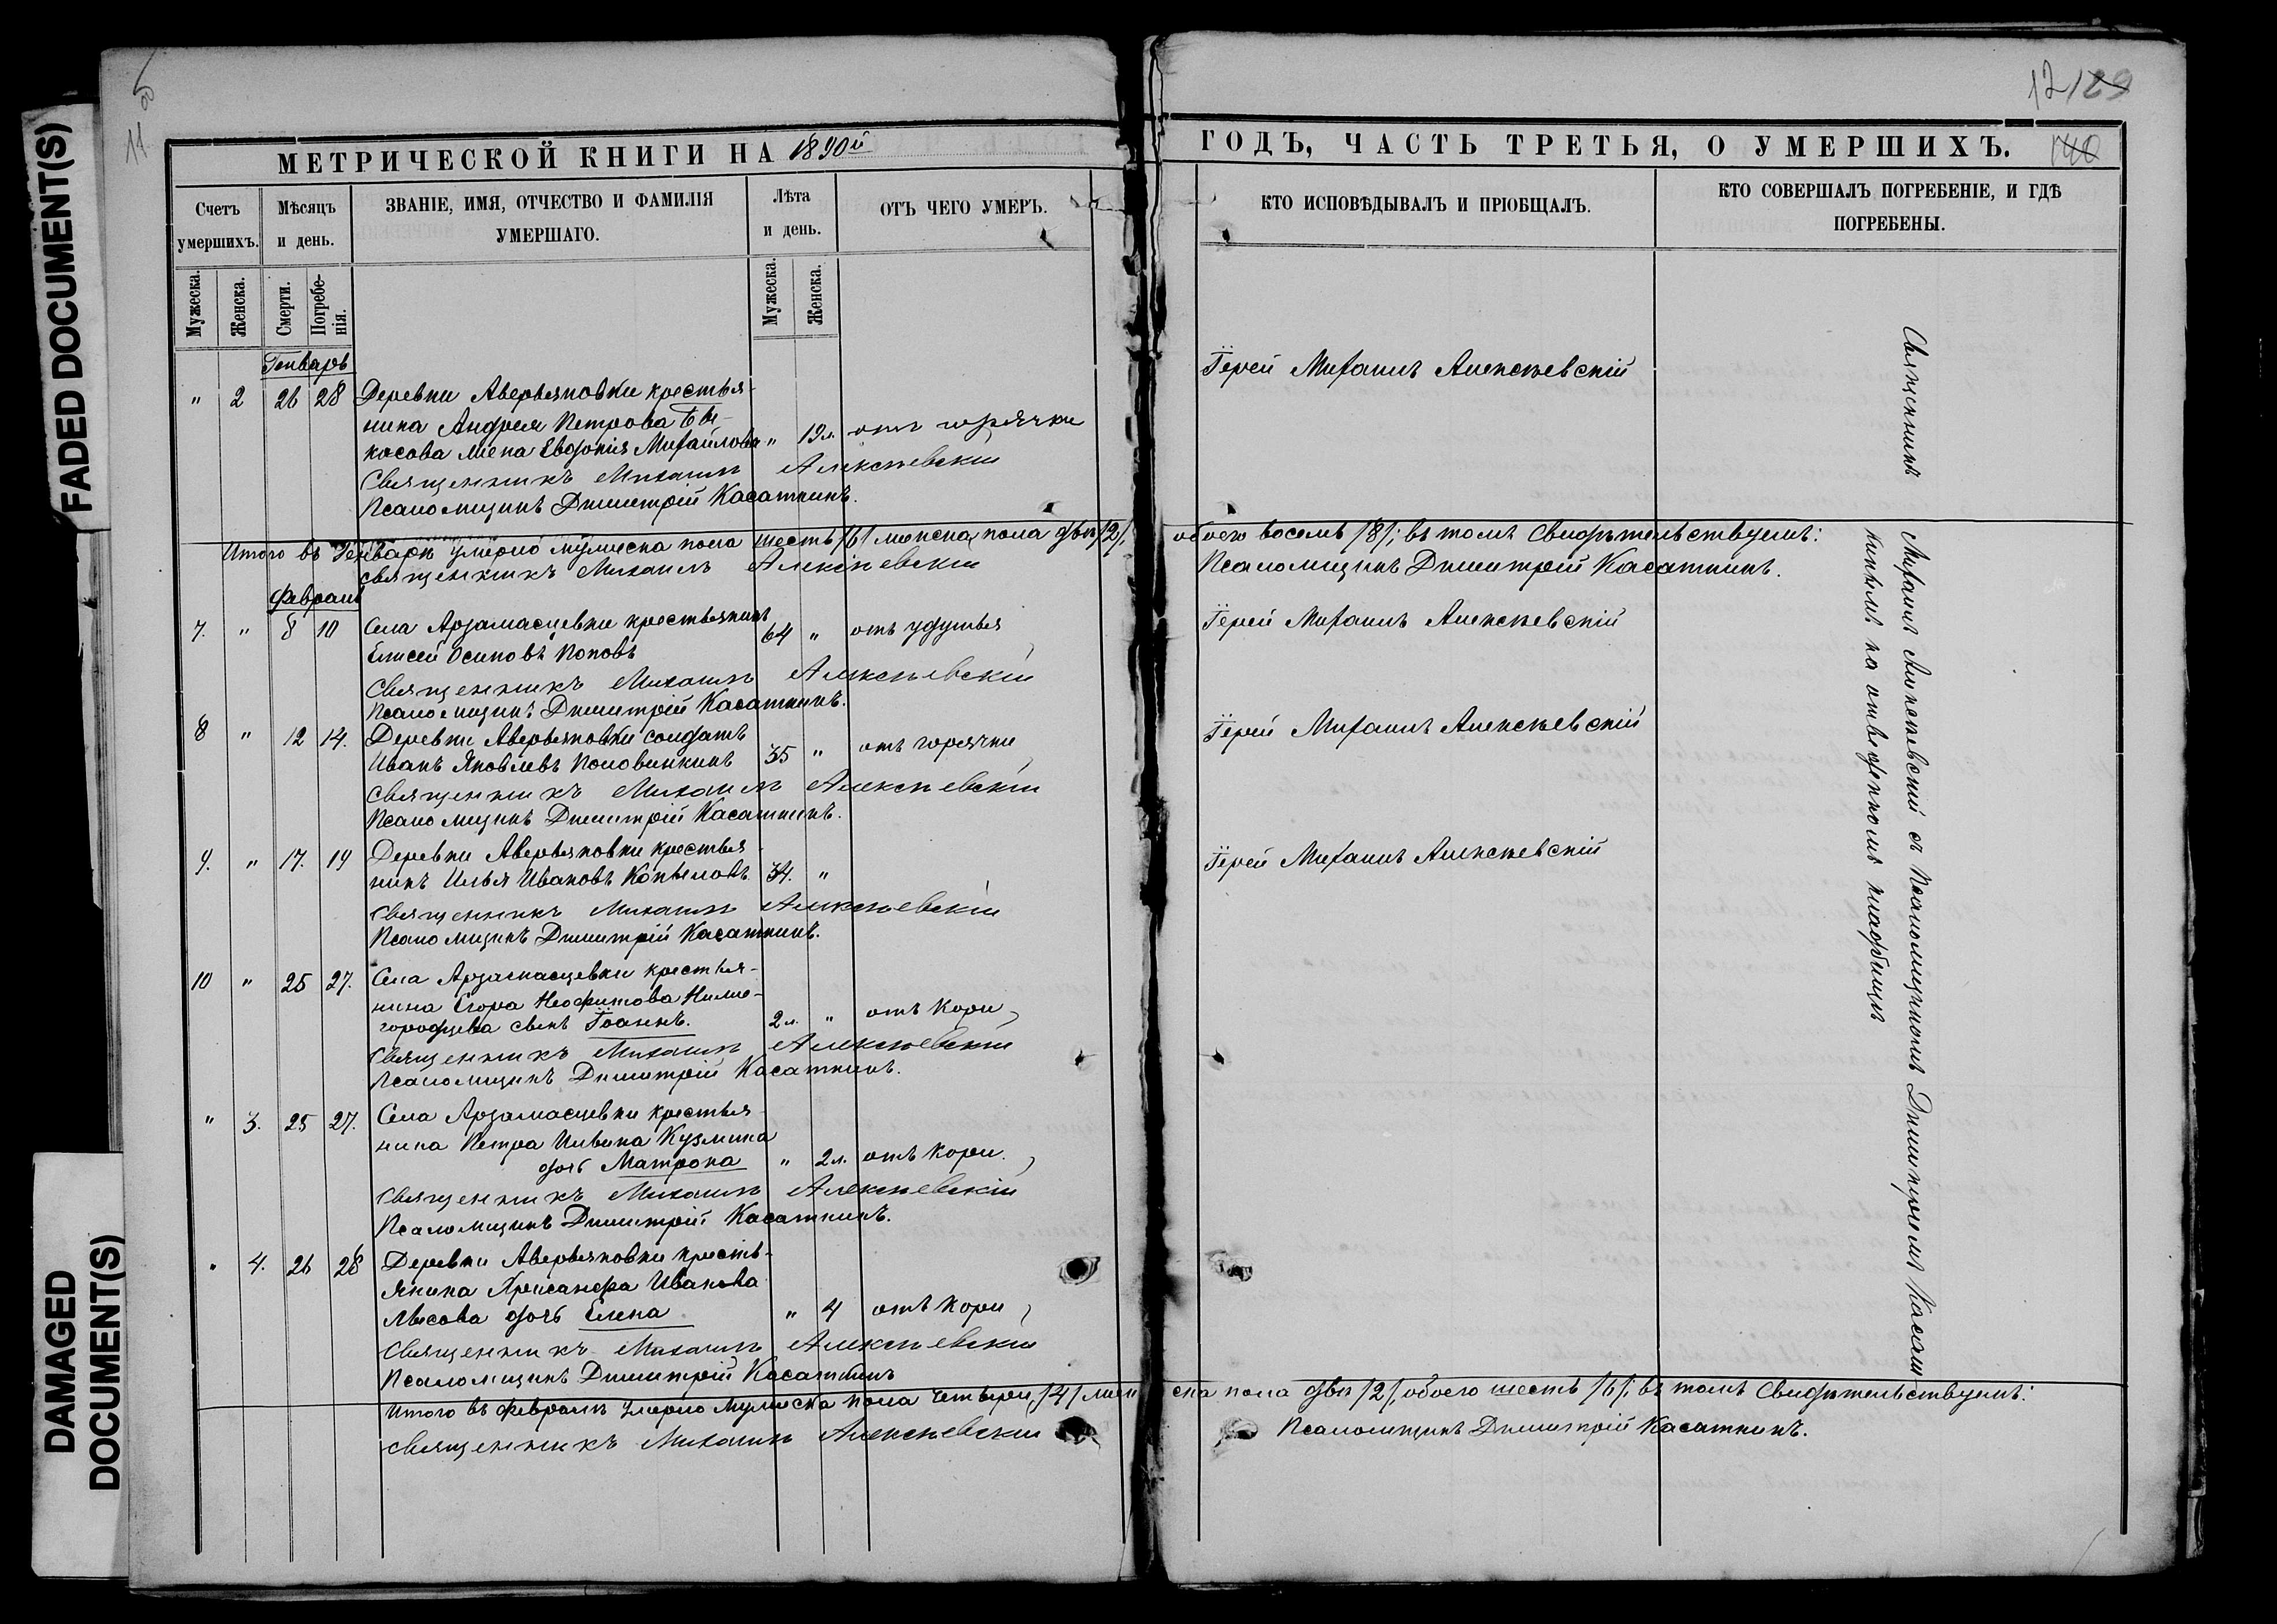 FADED DOCUMENT(S)
DAMAGED
DOCUMENT(S)
11
12/29
140
МЕТРИЧЕСКОЙ КНИГИ НА 1890й
Счетъ
умершихъ.
Мѣсяцъ
и день.
ЗВАНІЕ, ИМЯ, ОТЧЕСТВО И ФАМИЛІЯ
УМЕРШАГО.
Лѣта
и день.
ОТЪ ЧЕГО УМЕРЪ.
Мужеска.
Женска.
Смерти.
Погребе-
нія.
Мужеска.
Женска.
Генварь
" 2 26 28 Деревни Аверьяновки крестья-
нина Андрея Петрова
косова жена Евдокія Михайлова " 19 л. отъ горячки
Священникъ Михаилъ Алексѣевскій
Псаломщикъ Димитрій Касаткинъ.
Итого въ Генварѣ умерло мужеска пола шесть /6/ женска пола двѣ /2/.
Священникъ Михаилъ Алексѣевскій
Февраль
7. " 8 10 Села Арзамасцевки крестьянинъ
Елисей Осиповъ Поповъ 64 " отъ удушья
Священникъ Михаилъ Алексѣевскій
Псаломщикъ Димитрій Касаткинъ.
8 " 12 14. Деревни Аверьяновки солдатъ
Иванъ Яковлевъ Половинкинъ 35 " отъ горячки
Священникъ Михаилъ Алексѣевскій
Псаломщикъ Димитрій Касаткинъ.
9. " 17. 19 Деревни Аверьяновки крестья-
нинъ Илья Ивановъ Копыловъ 34. "
Священникъ Михаилъ Алексѣевскій
Псаломщикъ Димитрій Касаткинъ.
10 " 25 27. Села Арзамасцевки крестья-
нина Егора Неофитова Ниже-
городцева сынъ Іоаннъ. 2 л. " отъ кори
Священникъ Михаилъ Алексѣевскій
Псаломщикъ Димитрій Касаткинъ.
" 3. 25 27. Села Арзамасцевки крестья-
нина Петра Ильина Кузмина
дочь Матрона " 2 л. отъ кори.
Священникъ Михаилъ Алексѣевскій
Псаломщикъ Димитрій Касаткинъ.
" 4. 26 28 Деревни Аверьяновки кресть-
янина Хрисанфа Иванова
Лысова дочь Елена " 4 отъ кори
Священникъ Михаилъ Алексѣевскій
Псаломщикъ Димитрій Касаткинъ
Итого въ февралѣ умерло мужеска пола четыре, /4/ жен
Священникъ Михаилъ Алексѣевскій
ГОДЪ, ЧАСТЬ ТРЕТЬЯ, О УМЕРШИХЪ.
КТО ИСПОВѢДЫВАЛЪ И ПРІОБЩАЛЪ.
КТО СОВЕРШАЛЪ ПОГРЕБЕНІЕ, И ГДѢ
ПОГРЕБЕНЫ.
Іерей Михаилъ Алексѣевскій
обоего восемь /8/; въ томъ свидѣтельствуемъ:
Псаломщикъ Димитрій Касаткинъ.
Іерей Михаилъ Алексѣевскій
Іерей Михаилъ Алексѣевскій
Іерей Михаилъ Алексѣевскій
Священникъ Михаилъ Алексѣевскій съ Псаломщикомъ Димитріемъ Касат
кинымъ на отведенномъ кладбищѣ
ска пола двѣ /2/, обоего шесть /6/; въ томъ свидѣтельствуемъ:
Псаломщикъ Димитрій Касаткинъ.